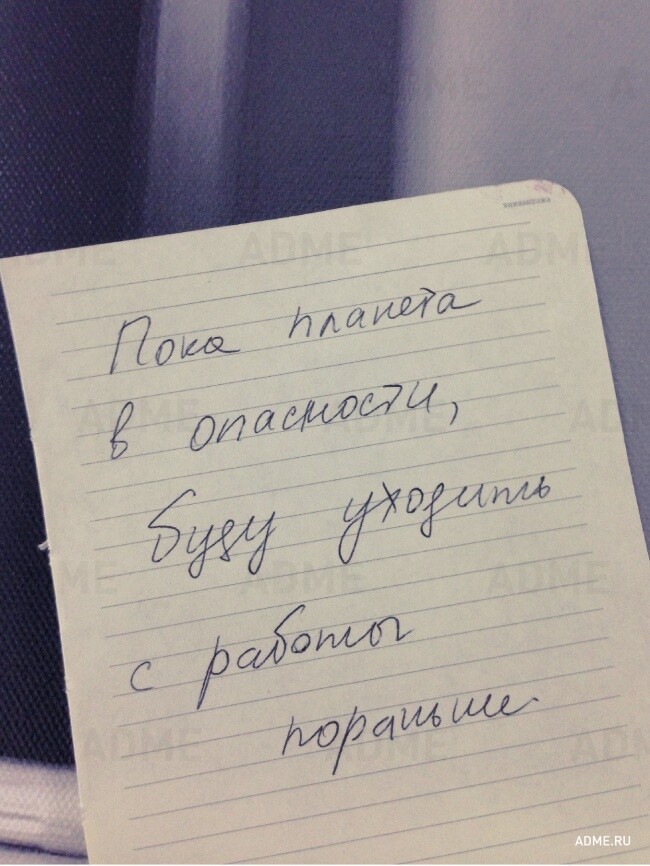 Пока планета
в опасности,
буду уходить
с работы
пораньше.
ADME.RU